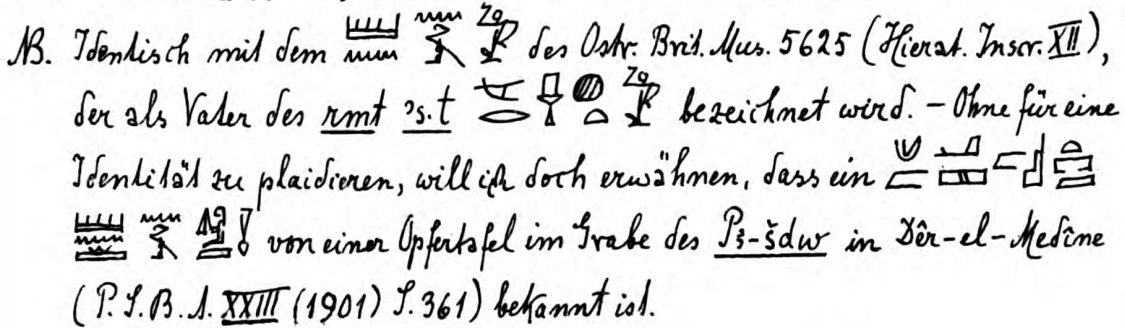 NB. Identisch mit dem des Ostr. Brit. Mus. 5625 (Hierat. Inscr. XII),
der als Vater des rmt ꜣs.t bezeichnet wird. – Ohne für eine
Identität zu plaidieren, will ich doch erwähnen, dass ein
von einer Opfertafel im Grabe des Pꜣ-šdw in Dêr-el-Medîne
(P. S. B. A. XXIII (1901) S. 361) bekannt ist.